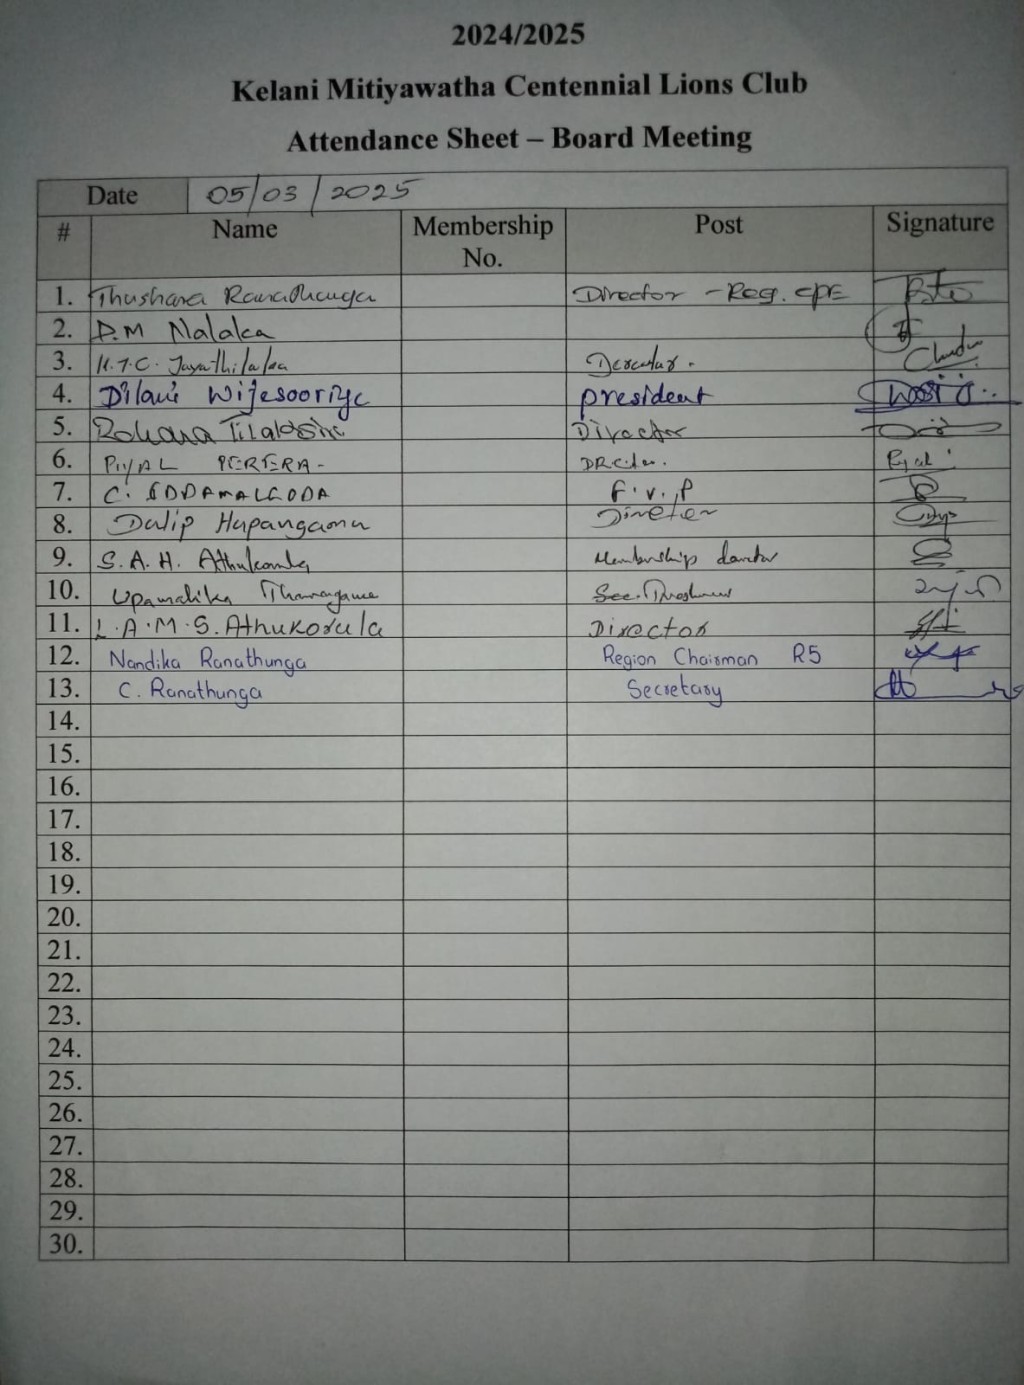 2024/2025
Kelani Mitiyawatha Centennial Lions Club
Attendance Sheet – Board Meeting
Date 05/03/2025
# Name Membership No. Post Signature
1. Thushara Ranathunga Director - Reg. CPE
2. D.M Nalaka
3. H.T.C. Jayathilaka
4. Dilani Wijesooriya president
5. Rohana Tilaksiri Director
6. PIYAL PERERA -
7. C. EDDAMALGODA F.V.P
8. Dulip Hapangama Director
9. S.A.H. Athukorala Membership
10. Upamalika
11. L.A.M.S. Athukorula Director
12. Nandika Ranathunga Region Chairman R5
13. C. Ranathunga Secretary
14.
15.
16.
17.
18.
19.
20.
21.
22.
23.
24.
25.
26.
27.
28.
29.
30.